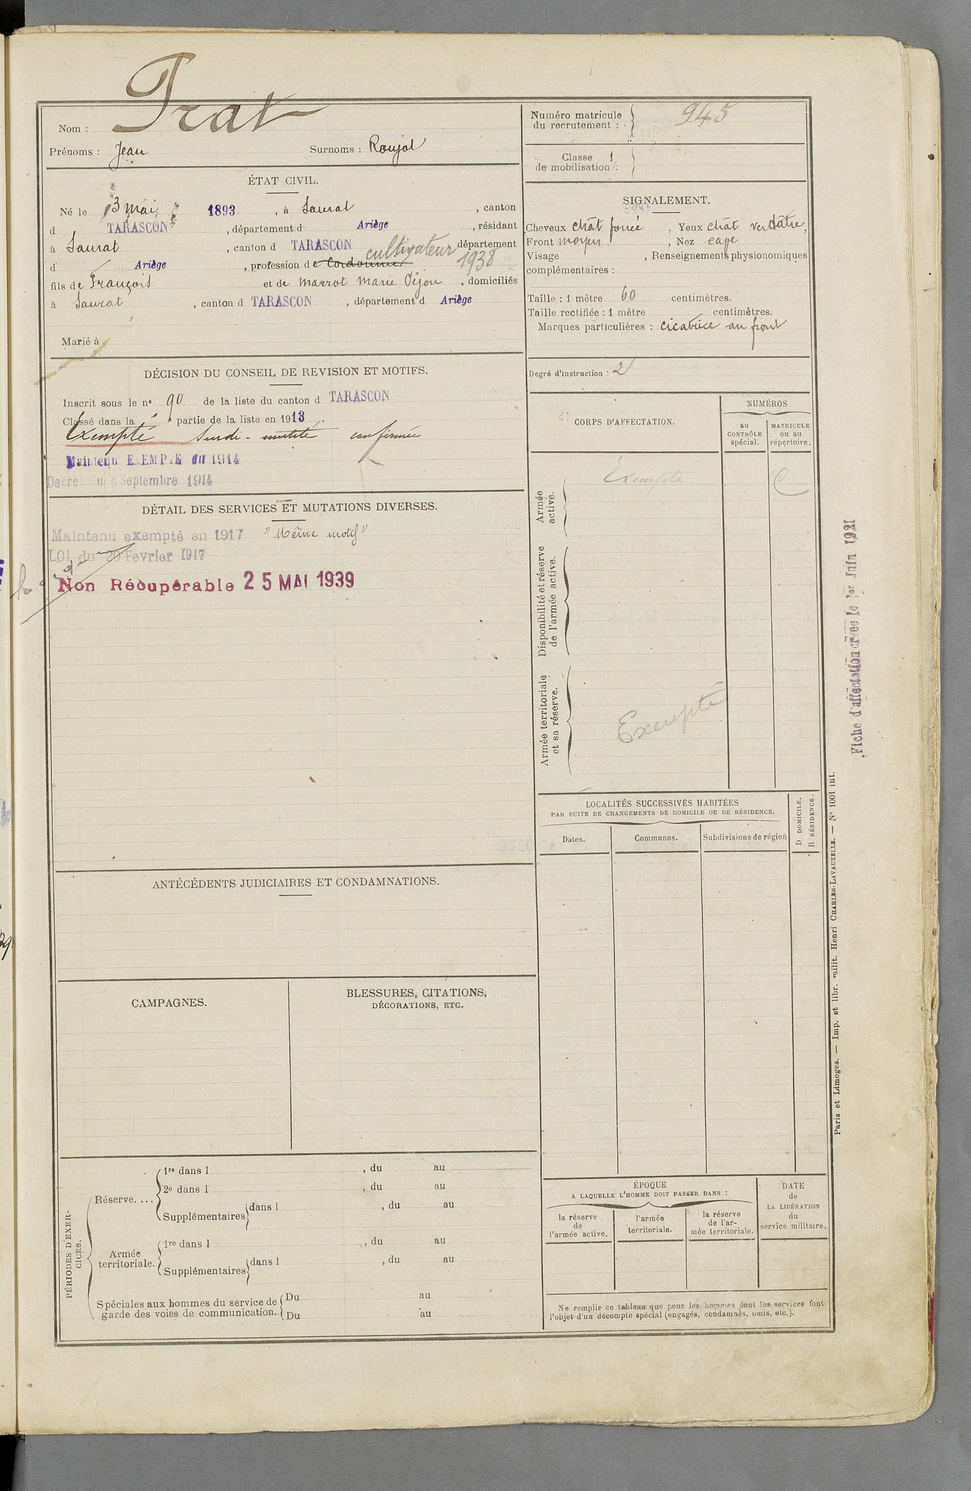 Nom : Prat
Prénoms : Jean Surnoms : Roujol
Numéro matricule du recrutement : 945
Classe de mobilisation :
ÉTAT CIVIL.
Né le 13 mai 1893, à Saurat, canton
d TARASCON, département d Ariège, résidant
à Saurat, canton d TARASCON département
d Ariège, profession de Cordonnier cultivateur 1938
fils de François et de Marrot Marie, domiciliés
à Saurat, canton d TARASCON, département d Ariège
Marié à
SIGNALEMENT.
Cheveux chât foncé, Yeux chât verdâtre,
Front moyen, Nez
Visage, Renseignements physionomiques
complémentaires :
Taille : 1 mètre 60 centimètres.
Taille rectifiée : 1 mètre centimètres.
Marques particulières : cicatrice au front
Degré d'instruction : 2
DÉCISION DU CONSEIL DE REVISION ET MOTIFS.
Inscrit sous le n° 90 de la liste du canton d TARASCON
Classé dans la partie de la liste en 1913
Exempté Surdi-mutité confirmée
Maintenu EXEMPTÉ en 1914
Décret du Septembre 1914
DÉTAIL DES SERVICES ET MUTATIONS DIVERSES.
Maintenu exempté en 1917 "Même motif"
LOI du 20 Février 1917
Non Récupérable 25 MAI 1939
CORPS D'AFFECTATION.
NUMÉROS
au CONTRÔLE spécial.
MATRICULE ou au répertoire.
Armée active.
Exempté
Disponibilité et réserve de l'armée active.
Armée territoriale et sa réserve.
Exempté
Fiche d'affectation créée le 1er Juin 1921
LOCALITÉS SUCCESSIVES HABITÉES
PAR SUITE DE CHANGEMENTS DE DOMICILE OU DE RÉSIDENCE.
Dates. Communes. Subdivisions de région
D DOMICILE. R RÉSIDENCE.
ANTÉCÉDENTS JUDICIAIRES ET CONDAMNATIONS.
CAMPAGNES.
BLESSURES, CITATIONS,
DÉCORATIONS, ETC.
PÉRIODES D'EXERCICES.
Réserve....
1re dans l , du au
2e dans l , du au
Supplémentaires dans l , du au
Armée territoriale.
1re dans l , du au
Supplémentaires dans l , du au
Spéciales aux hommes du service de garde des voies de communication.
Du au
Du au
ÉPOQUE
A LAQUELLE L'HOMME DOIT PASSER DANS :
la réserve de l'armée active.
l'armée territoriale.
la réserve de l'armée territoriale.
DATE de LA LIBÉRATION du service militaire.
Ne remplir ce tableau que pour les hommes dont les services font
l'objet d'un décompte spécial (engagés, condamnés, omis, etc.).
Paris et Limoges. — Imp. et libr. milit. Henri CHARLES-LAVAUZELLE. — N° 1001 int.